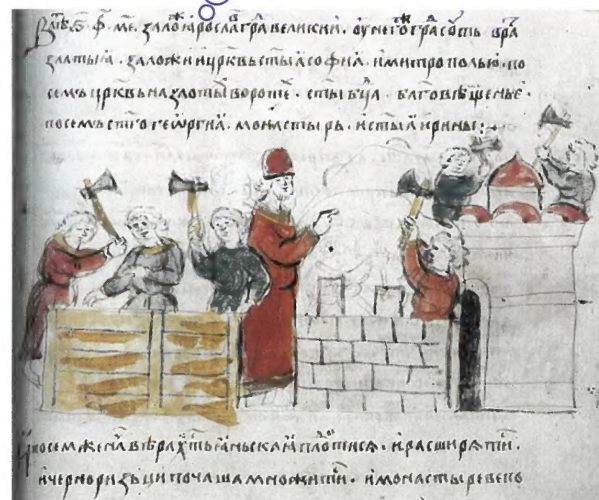 В лѣⷮ ҂ѕ҃ ф҃ м҃е. залоⷤ ꙗрославъ граⷣ великии. оу негоⷤ граⷣ соуть вра
златыꙗ. заложи и цр҃квь ст҃ыꙗ софиꙗ. и митрополью. по
семъ цр҃квь на злоты вороте. ст҃ы бц҃а. благовѣщенье.
посемъ ст҃го геѡргиꙗ. монастырь. и ст҃ыꙗ ирины:
при семже нача вѣра хрⷭ҇тьꙗньскаꙗ плодтисѧ. и расширѧти.
и черноризьци почаша множити. и монастыреве по